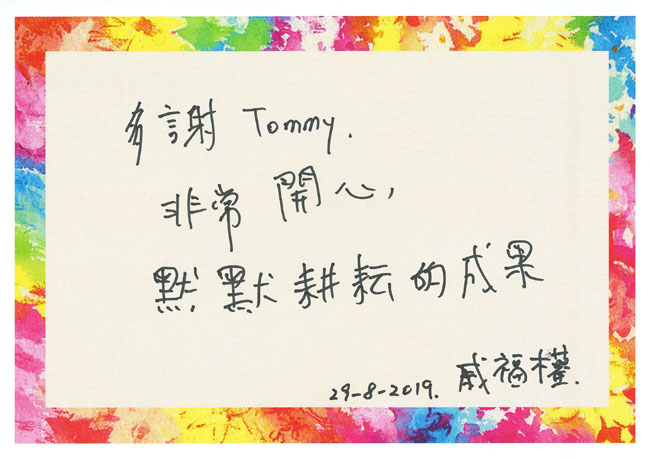 多謝 Tommy.
非常開心,
默默耕耘的成果
29-8-2019.